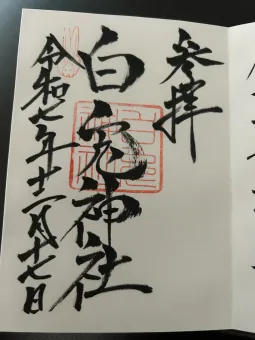 参拝
白兎神社
令和七年十一月十七日